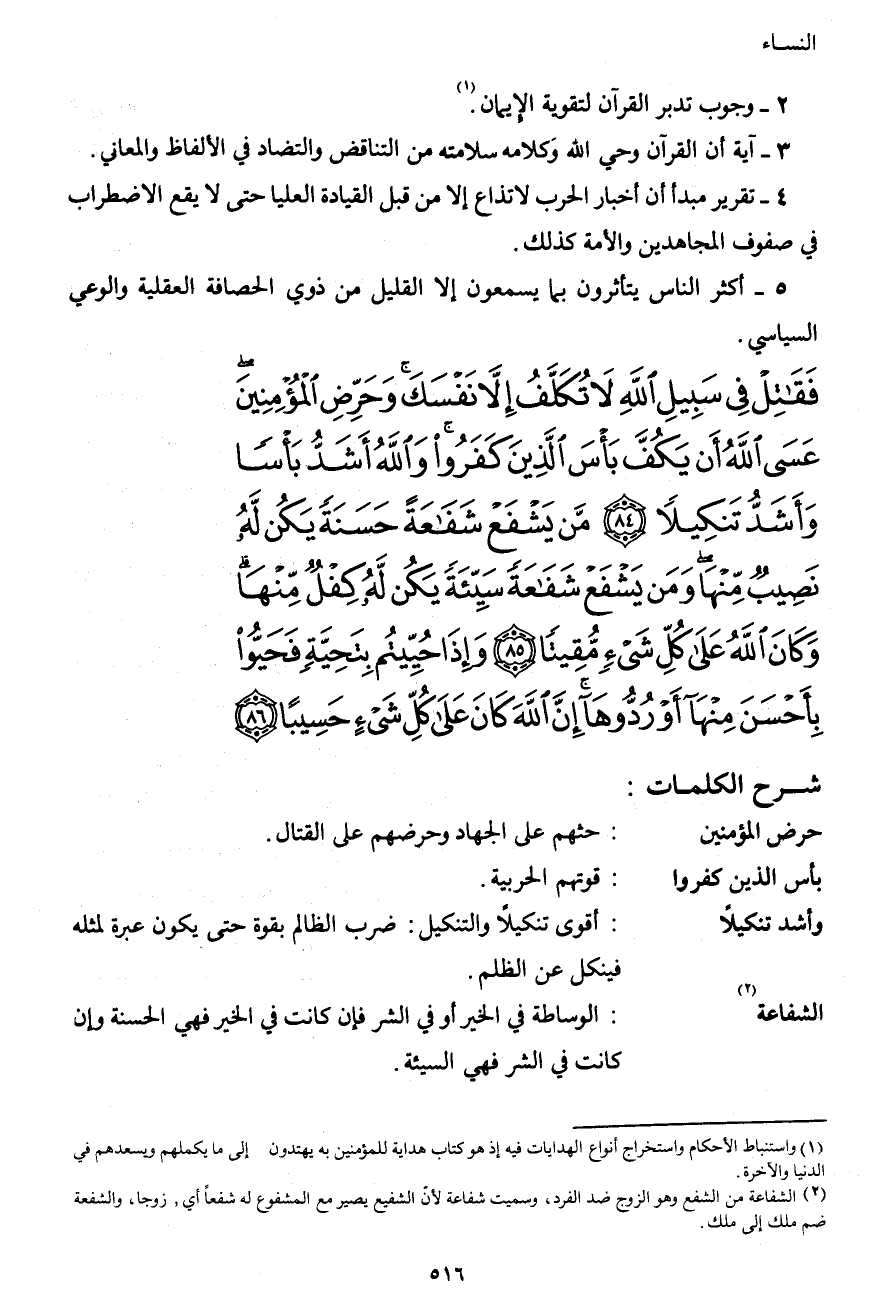 النساء
٢ ـ وجوب تدبر القرآن لتقوية الإيمان.(١)
٣ ـ آية أن القرآن وحي الله وَكلامه سلامته من التناقض والتضاد في الألفاظ والمعاني.
٤ ـ تقرير مبدأ أن أخبار الحرب لا تذاع إلا من قبل القيادة العليا حتى لا يقع الاضطراب
في صفوف المجاهدين والأمة كذلك.
٥ ـ أكثر الناس يتأثرون بما يسمعون إلا القليل من ذوي الحصافة العقلية والوعي
السياسي.
فَقَٰتِلۡ فِي سَبِيلِ ٱللَّهِ لَا تُكَلَّفُ إِلَّا نَفۡسَكَۚ وَحَرِّضِ ٱلۡمُؤۡمِنِينَۖ
عَسَى ٱللَّهُ أَن يَكُفَّ بَأۡسَ ٱلَّذِينَ كَفَرُواْۚ وَٱللَّهُ أَشَدُّ بَأۡسٗا
وَأَشَدُّ تَنكِيلٗا ٨٤ مَّن يَشۡفَعۡ شَفَٰعَةً حَسَنَةٗ يَكُن لَّهُۥ
نَصِيبٞ مِّنۡهَاۖ وَمَن يَشۡفَعۡ شَفَٰعَةٗ سَيِّئَةٗ يَكُن لَّهُۥ كِفۡلٞ مِّنۡهَاۗ
وَكَانَ ٱللَّهُ عَلَىٰ كُلِّ شَيۡءٖ مُّقِيتٗا ٨٥ وَإِذَا حُيِّيتُم بِتَحِيَّةٖ فَحَيُّواْ
بِأَحۡسَنَ مِنۡهَآ أَوۡ رُدُّوهَآۗ إِنَّ ٱللَّهَ كَانَ عَلَىٰ كُلِّ شَيۡءٍ حَسِيبًا ٨٦
شـرح الكلمـات :
حرض المؤمنين : حثهم على الجهاد وحرضهم على القتال.
بأس الذين كفروا : قوتهم الحربية.
وأشد تنكيلاً : أقوى تنكيلاً والتنكيل: ضرب الظالم بقوة حتى يكون عبرة لمثله
فينكل عن الظلم.
الشفاعة(٢) : الوساطة في الخير أو في الشر فإن كانت في الخير فهي الحسنة وإن
كانت في الشر فهي السيئة.
(١) واستنباط الأحكام واستخراج أنواع الهدايات فيه إذ هو كتاب هداية للمؤمنين به يهتدون إلى ما يكملهم ويسعدهم في
الدنيا والآخرة.
(٢) الشفاعة من الشفع وهو الزوج ضد الفرد، وسميت شفاعة لأنّ الشفيع يصير مع المشفوع له شفعاً أي, زوجا، والشفعة
ضم ملك إلى ملك.
٥١٦